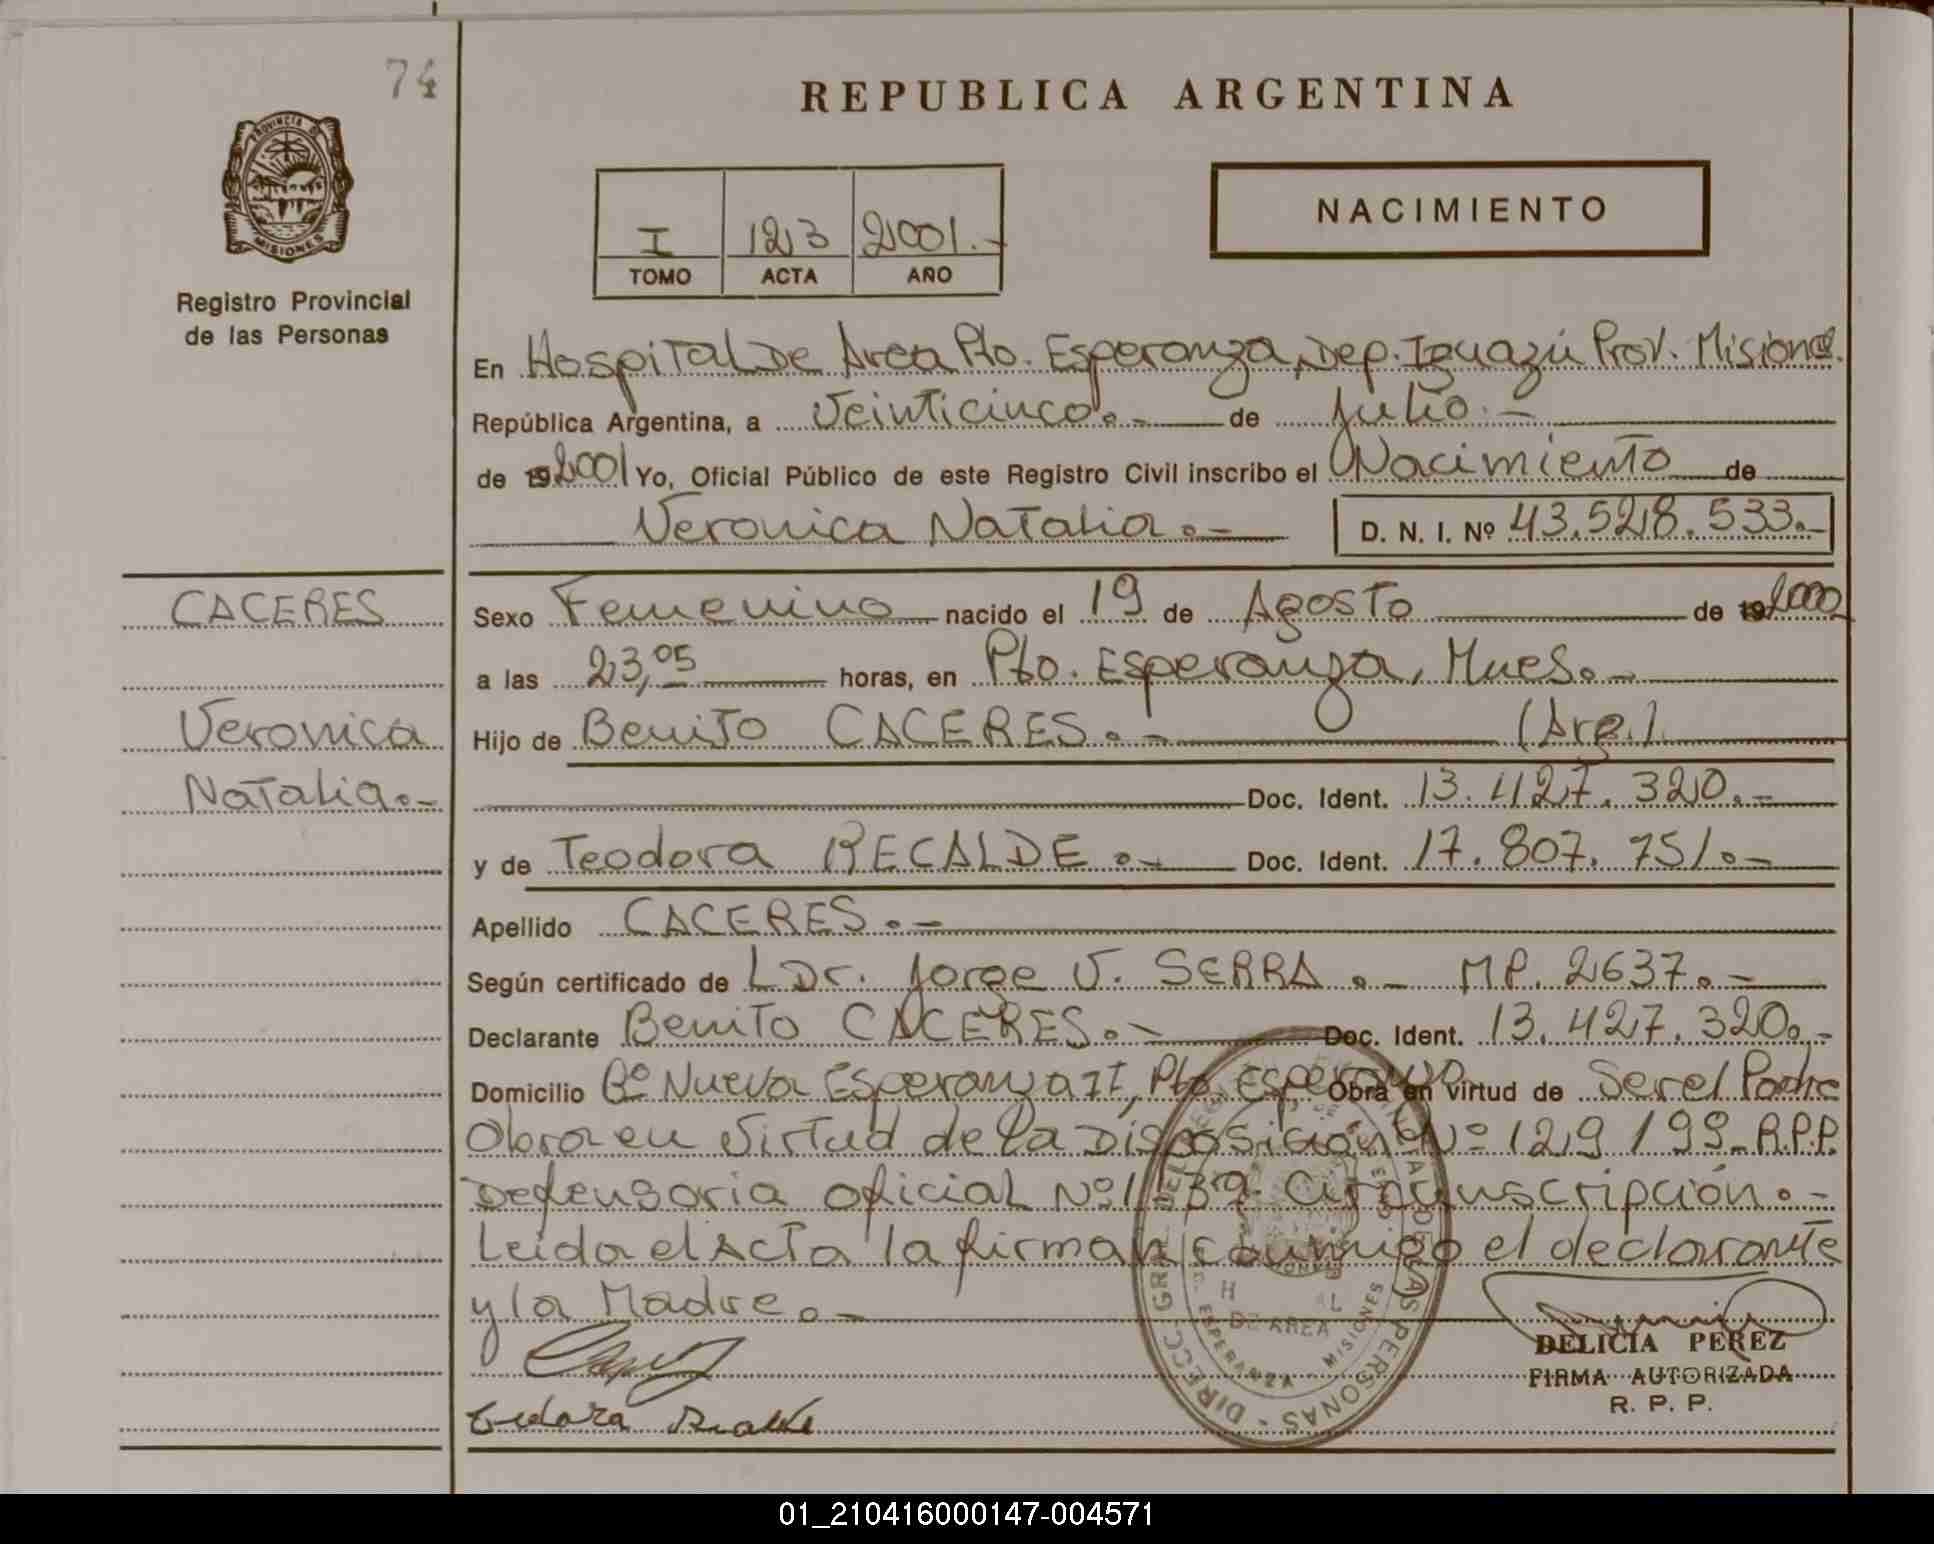 74
REPUBLICA ARGENTINA
PROVINCIA DE
MISIONES
Registro Provincial
de las Personas
I 123 2001.-
TOMO ACTA AÑO
NACIMIENTO
En Hospital De Area Pto. Esperanza, Dep. Iguazú Prov. Misiones.
República Argentina, a Veinticinco.- de Julio.-
de 19 2001 Yo, Oficial Público de este Registro Civil inscribo el Nacimiento de
Veronica Natalia.- D. N. I. Nº 43.528.533.-
CACERES
Veronica
Natalia.-
Sexo Femenino nacido el 19 de Agosto de 19 2000
a las 23,05 horas, en Pto. Esperanza, Mnes.-
Hijo de Benito CACERES.- (Arg.).
Doc. Ident. 13.427.320.-
y de Teodora RECALDE.- Doc. Ident. 17.807.751.-
Apellido CACERES.-
Según certificado de Dr. Jorge V. SERRA.- MP. 2637.-
Declarante Benito CACERES.- Doc. Ident. 13.427.320.-
Domicilio Bº Nueva Esperanza II, Pto Esperanza Obra en virtud de Ser el Padre
Obra en Virtud de la Disposición Nº 129/99- R.P.P.
Defensoria Oficial Nº 1 3ra. Circunscripción.-
Leida el Acta la firman conmigo el declarante
y la Madre.-
DIRECC. GRAL. DEL REGISTRO DE LAS PERSONAS
DE AREA
ESPERANZA - MISIONES
DELICIA PEREZ
FIRMA AUTORIZADA
R. P. P.
01_210416000147-004571